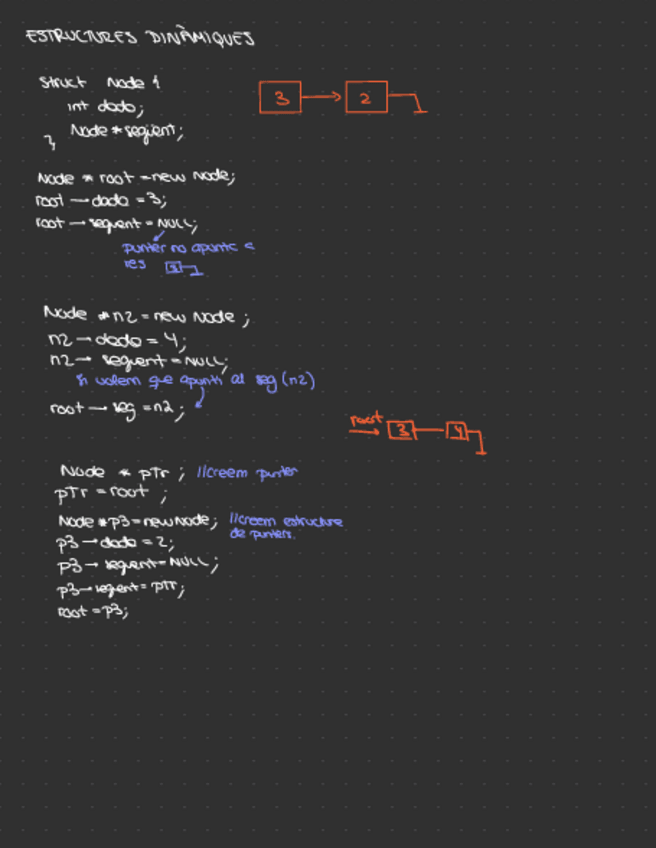 ESTRUCTURES DINÀMIQUES
Struct Node {
int dada;
Node * seqüent;
}
3 → 2
Node * root = new Node;
root → dada = 3;
root → seqüent = NULL;
punter no apunta a
res 3
Node * n2 = new Node ;
n2 → dada = 4;
n2 → seqüent = NULL;
Si volem que apunti al seg (n2)
root → seg = n2 ;
root
3 4
Node * pTr ; //creem punter
pTr = root ;
Node * p3 = new Node; //creem estructura
de punters.
p3 → dada = 2;
p3 → seqüent = NULL;
p3 → seqüent = pTr;
root = p3;